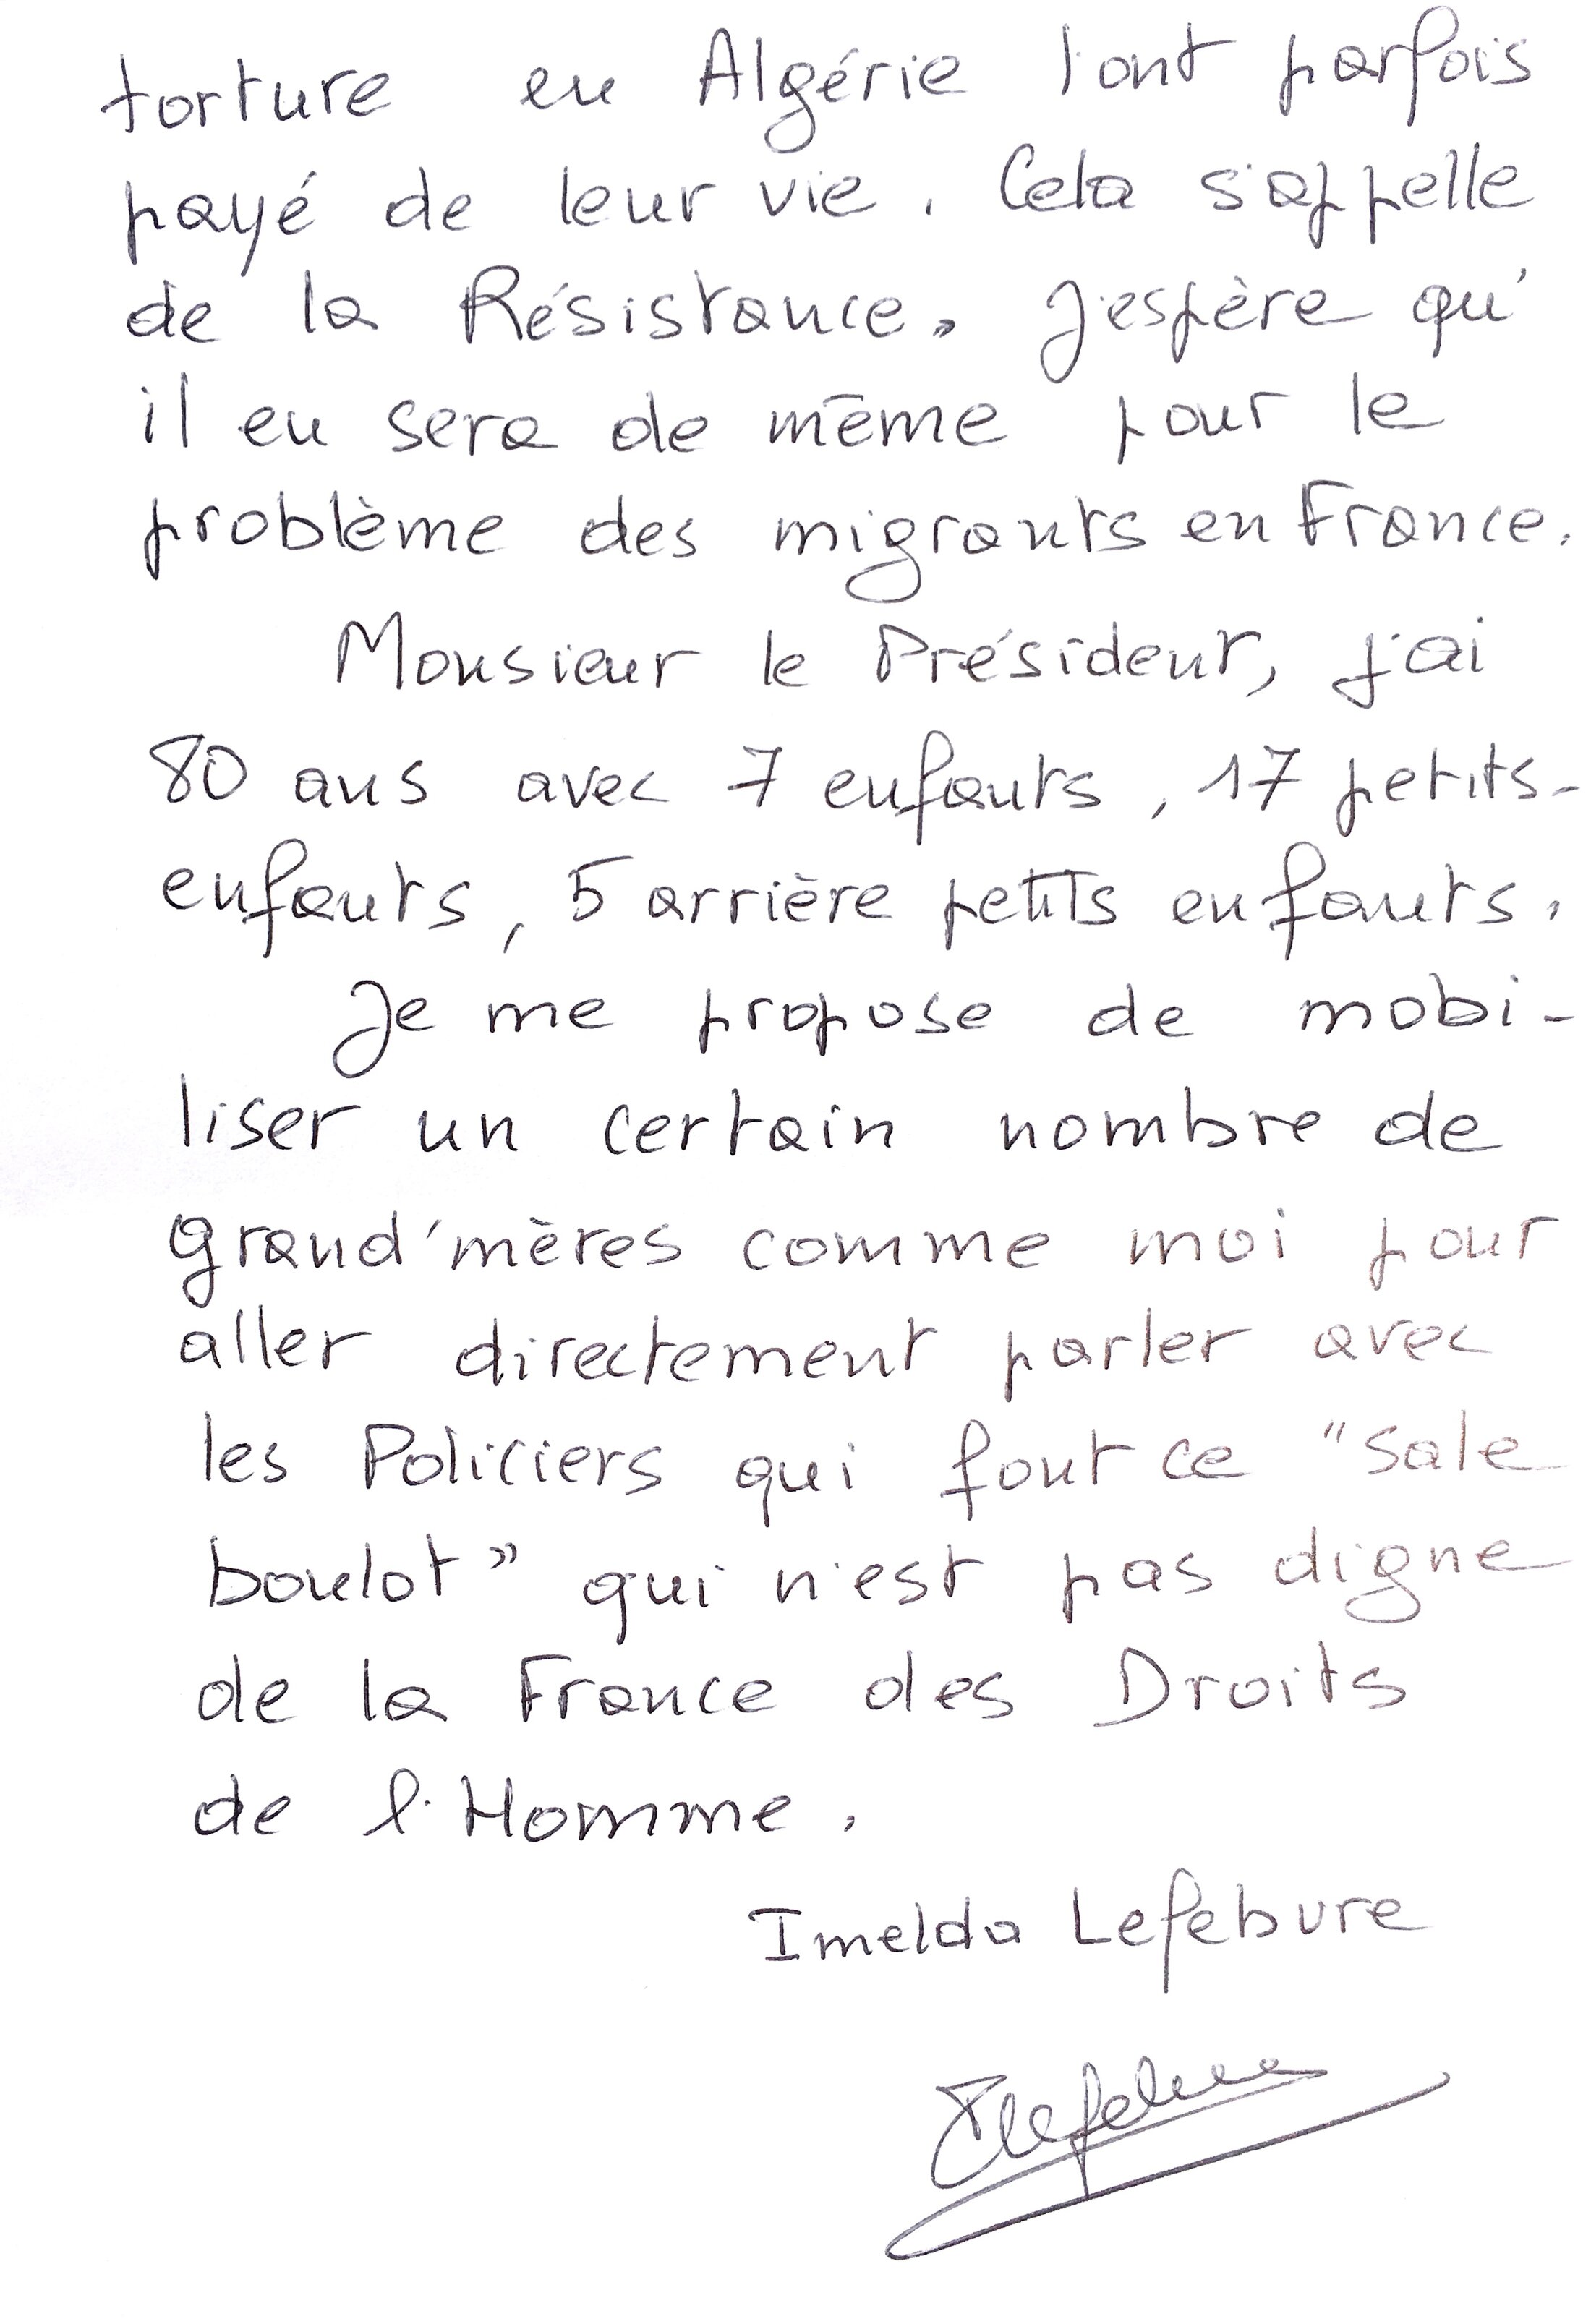 torture en Algérie l'ont parfois
payé de leur vie. Cela s'appelle
de la Résistance. J'espère qu'
il en sera de même pour le
problème des migrants en France.
Monsieur le Président, j'ai
80 ans avec 7 enfants, 17 petits-
enfants, 5 arrière petits enfants.
Je me propose de mobi-
liser un certain nombre de
grand'mères comme moi pour
aller directement parler avec
les Policiers qui font ce "sale
boulot" qui n'est pas digne
de la France des Droits
de l'Homme.
Imelda Lefebure